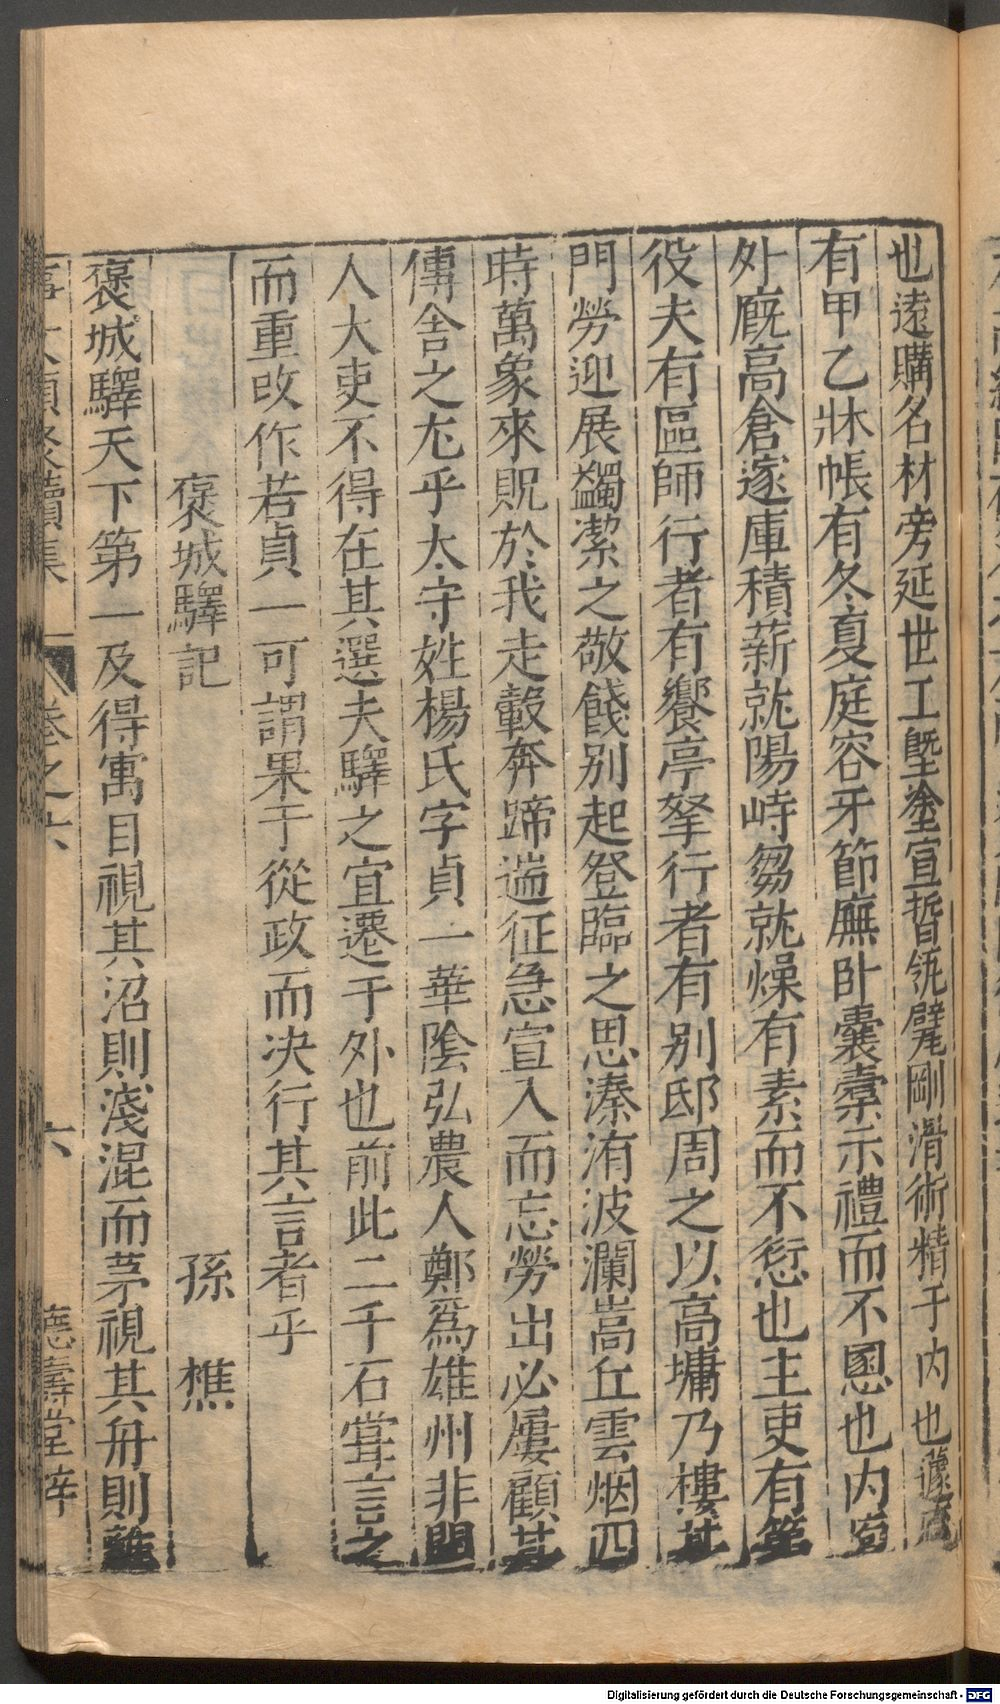 也遠購名材旁延世工塈塗宣晳瓴甓剛滑術精于内也蘧廬
有甲乙牀帳有冬夏庭容牙節廡卧囊橐示禮而不慁也内
外廐高倉邃庫積薪就陽峙芻就燥有素而不愆也主吏有第
役夫有區師行者有饗亭孥行者有别邸周之以高墉乃樓其
門勞迎展蠲潔之敬餞别起登臨之思溱洧波瀾嵩丘雲烟四
時萬象來貺於我走轂奔蹄遄征急宣入而忘勞出必屢顧其
傳舍之尤乎太守姓楊氏字貞一華陰弘農人鄭爲雄州非聞
人大吏不得在其選夫驛之宜遷于外也前此二千石甞言之
而重改作若貞一可謂果于從政而决行其言者乎
褒城驛記
孫 樵
褒城驛天下第一及得寓目視其沼則淺混而茅視其舟則離
事文類聚續集 卷之六 六
德壽堂梓
Digitalisierung gefördert durch die Deutsche Forschungsgemeinschaft - DFG